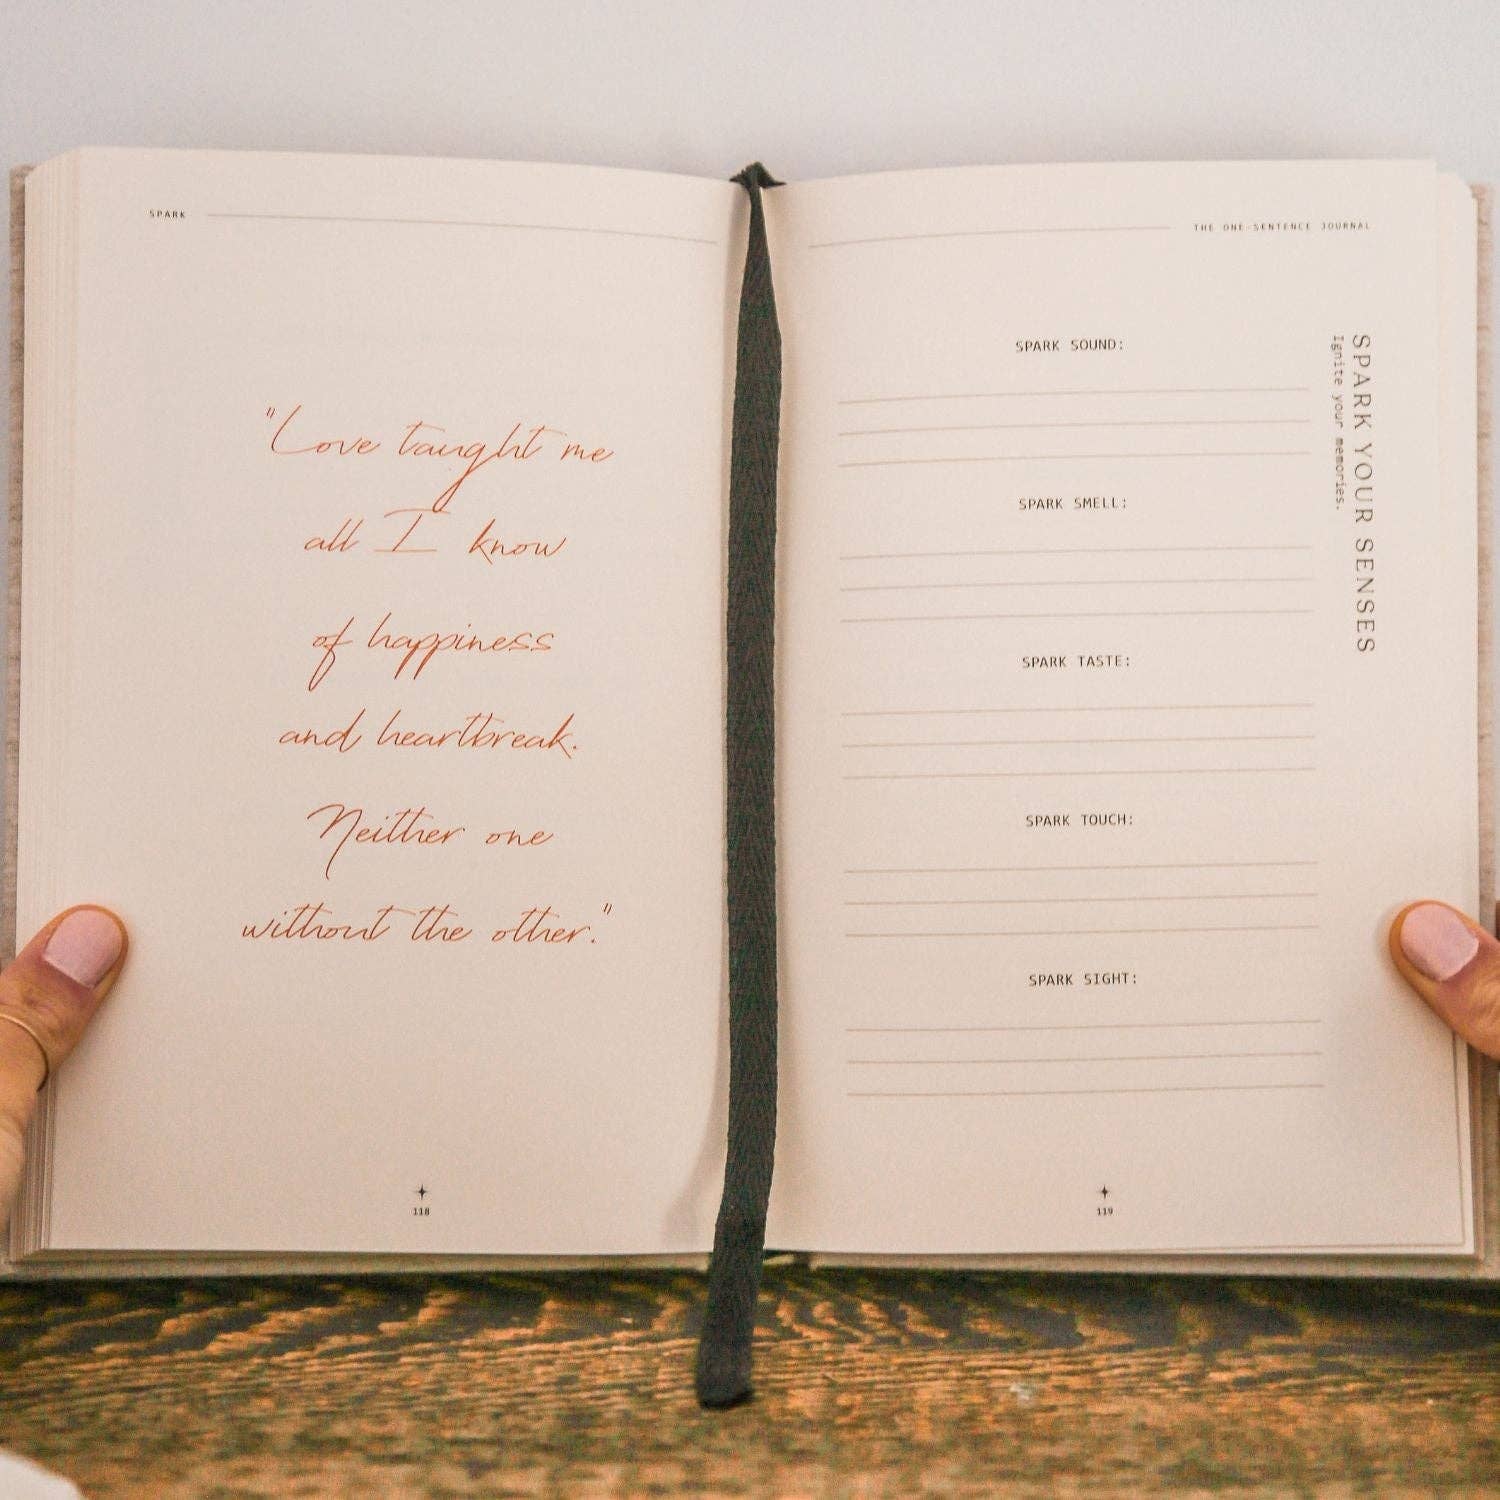 SPARK
"Love taught me
all I know
of happiness
and heartbreak.
Neither one
without the other."
118
THE ONE-SENTENCE JOURNAL
SPARK YOUR SENSES
Ignite your memories.
SPARK SOUND:
SPARK SMELL:
SPARK TASTE:
SPARK TOUCH:
SPARK SIGHT:
119